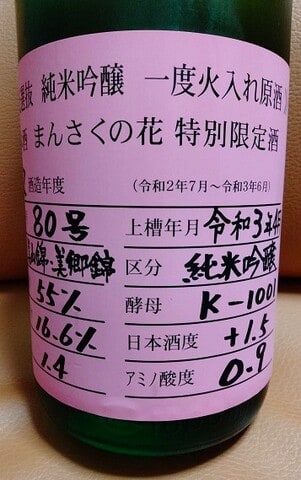 選抜 純米吟醸 一度火入れ原酒
酒 まんさくの花 特別限定酒
酒造年度 (令和2年7月~令和3年6月)
80号 上槽年月 令和3年4月
山錦・美郷錦 区分 純米吟醸
55% 酵母 K-1001
16.6% 日本酒度 +1.5
1.4 アミノ酸度 0.9